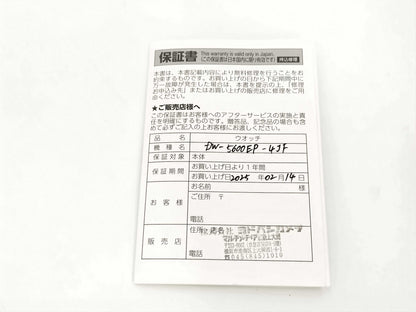 保証書 This warranty is valid only in Japan. (この保証書は日本国内に限り有効です) 持込修理
本書は、本書記載内容により無料修理を行うことをお約束するものです。お買い上げの日から下記期間中に万一故障が発生した場合は、本書を提示の上、「修理お申込み先」またはお買い上げの販売店に修理をご用命ください。
★ご販売店様へ
この保証書はお客様へのアフターサービスの実施と責任を明確にするものです。贈答品、記念品の場合も含めて必ずご記入の上お客様にお渡しください。
品名 ウオッチ
機種名 DW-5600EP-4JF
保証対象 本体
保証期間 お買い上げ日より1年間
お買い上げ日 2025 年 02 月 14 日
お客様 お名前 様
ご住所 〒
電話
販売店 住所・店名 株式会社 ヨドバシカメラ
マルチメディア京急上大岡
電話 045(845)1010